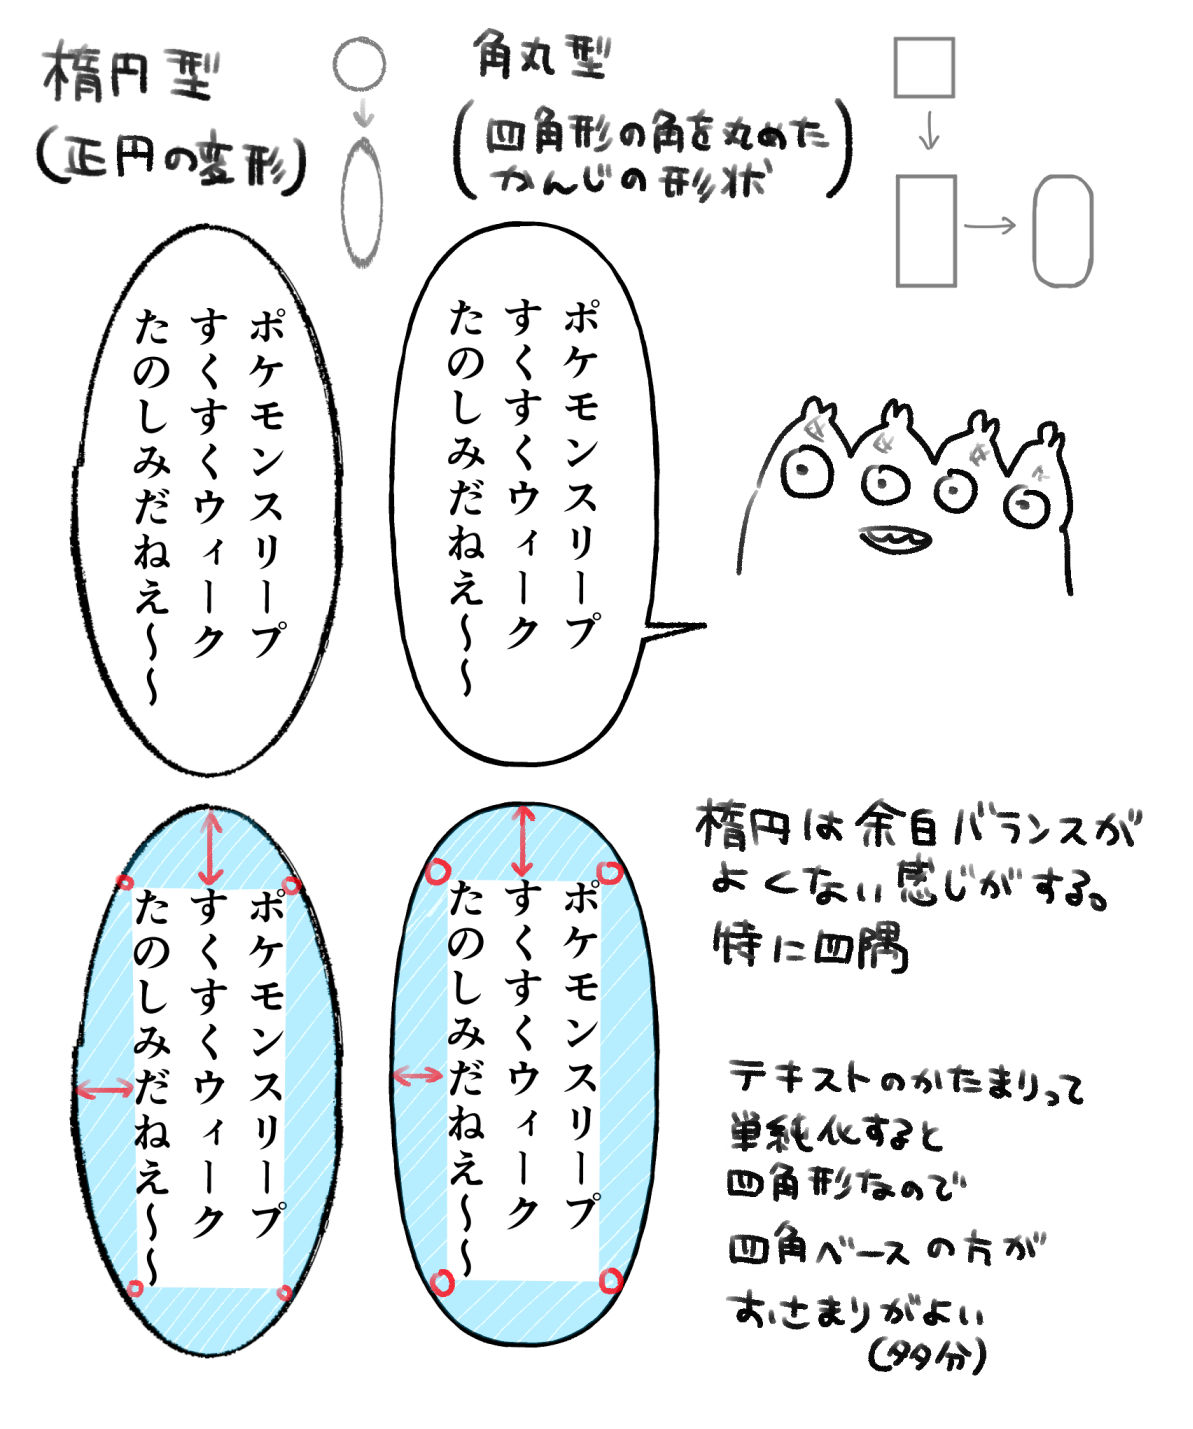 楕円型
(正円の変形)
角丸型
(四角形の角を丸めた
かんじの形状)
ポケモンスリープ
すくすくウィーク
たのしみだねえ〜〜
ポケモンスリープ
すくすくウィーク
たのしみだねえ〜〜
ポケモンスリープ
すくすくウィーク
たのしみだねえ〜〜
ポケモンスリープ
すくすくウィーク
たのしみだねえ〜〜
楕円は余白バランスが
よくない感じがする。
特に四隅
テキストのかたまりって
単純化すると
四角形なので
四角ベースの方が
おさまりがよい
(多分)